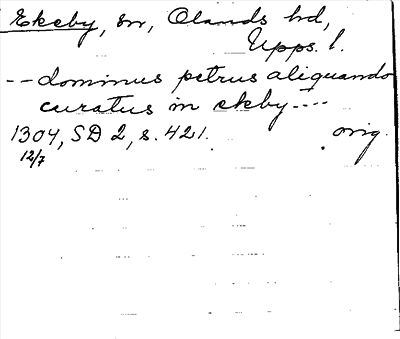 Ekeby, sn, Olands hd,
Upps. l.
-- dominus petrus aliquando
curatus in ekby ----
1304, SD 2, s. 421. orig.
12/7